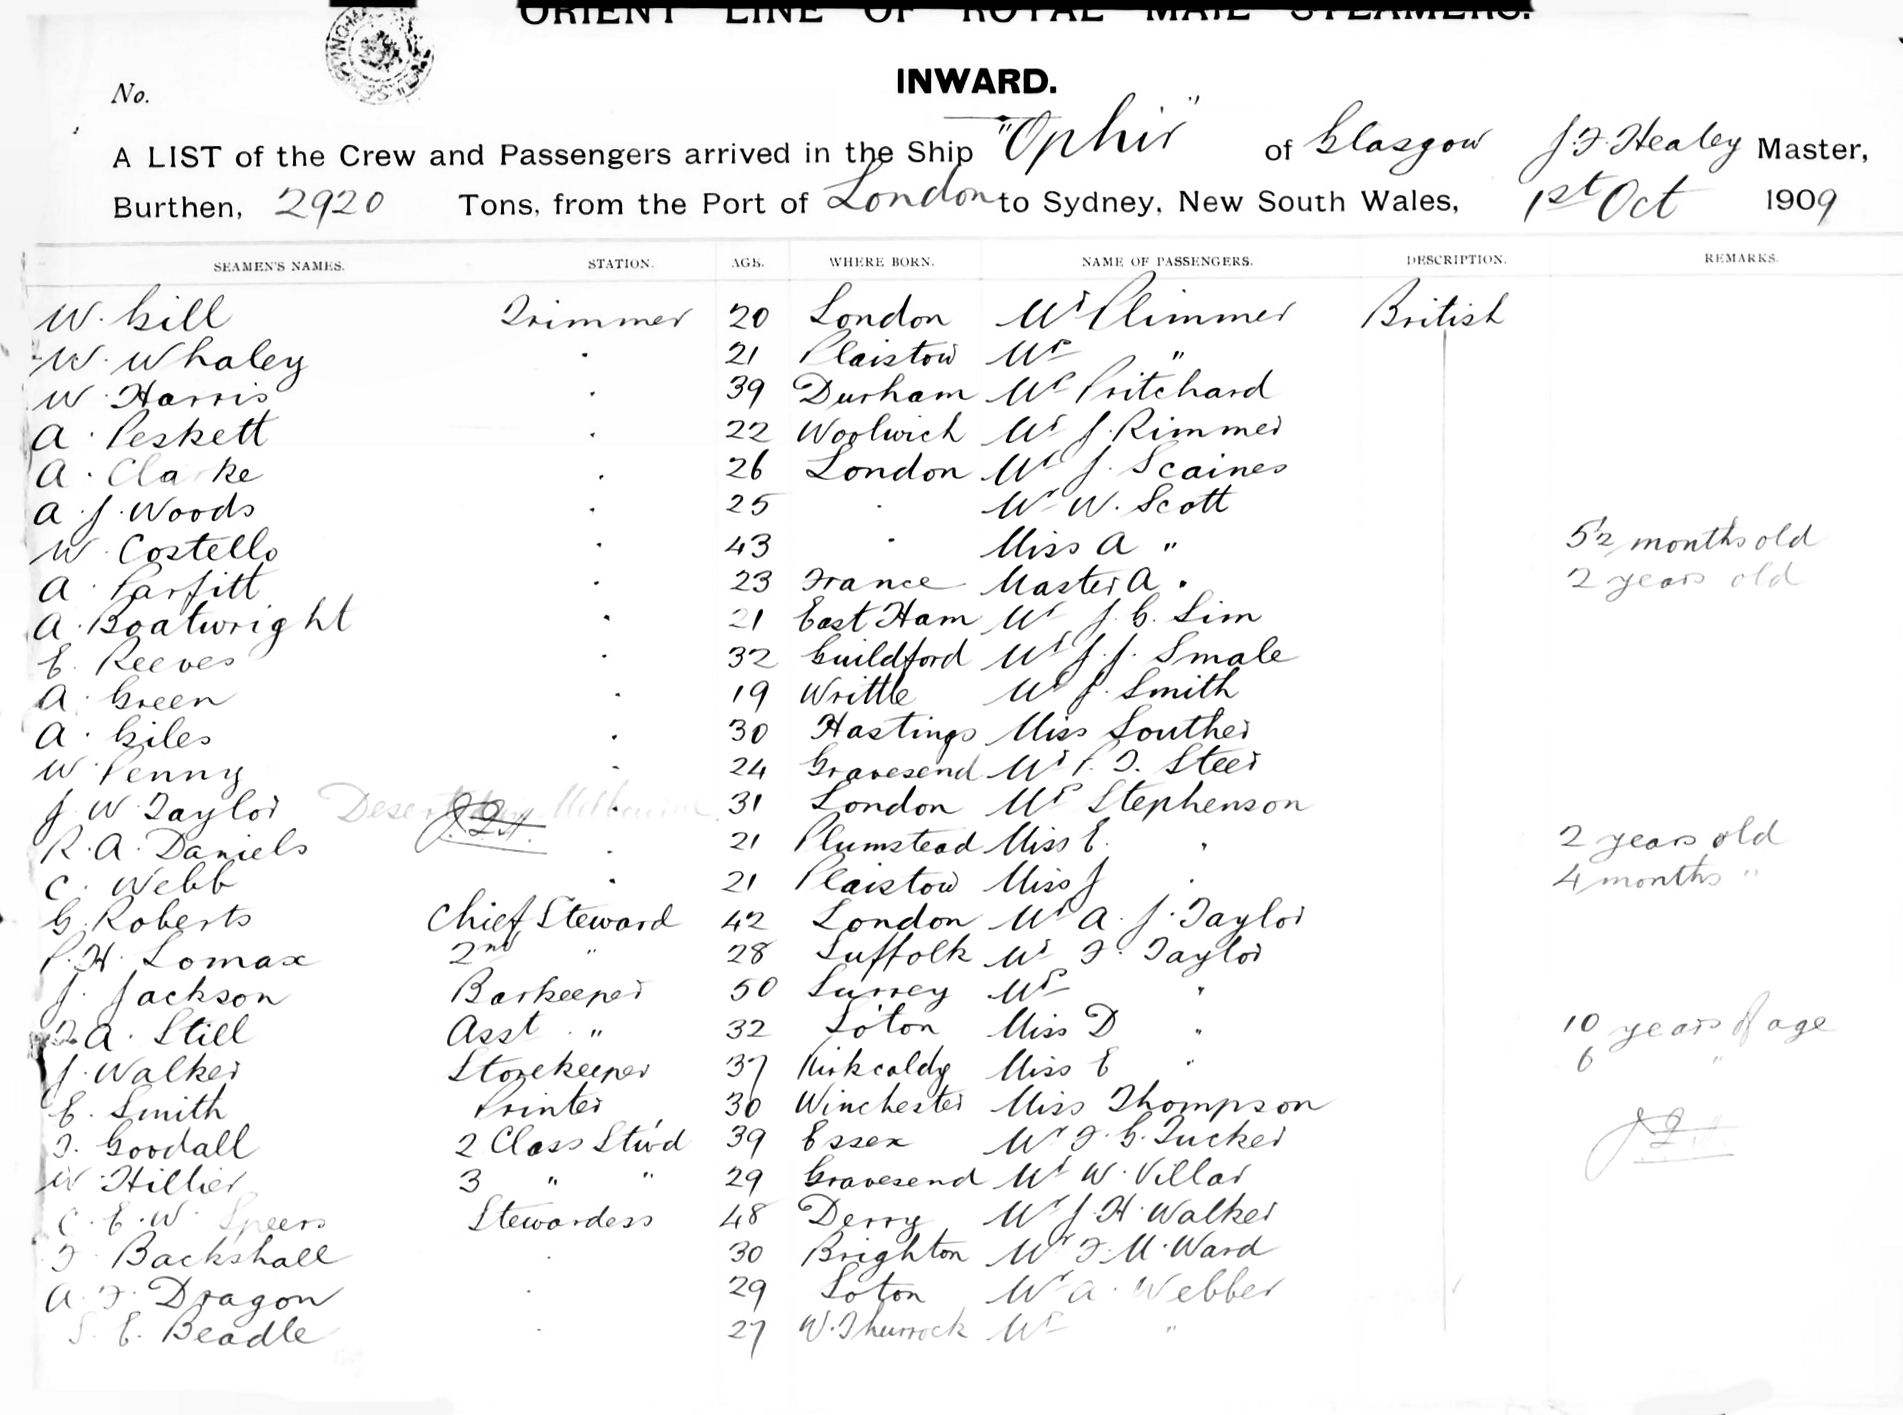 ORIENT LINE OF ROYAL MAIL STEAMERS.
INWARD.
No.
A LIST of the Crew and Passengers arrived in the Ship "Ophir" of Glasgow J. F. Healey Master,
Burthen, 2920 Tons, from the Port of London to Sydney, New South Wales, 1st Oct 1909
SEAMEN'S NAMES. STATION. AGE. WHERE BORN. NAME OF PASSENGERS. DESCRIPTION. REMARKS.
W. Gill Trimmer 20 London Mr Plimmer British
W. Whaley . 21 Plaistow Mrs "
W. Harris . 39 Durham Mrs Pritchard
A. Peskett . 22 Woolwich Mr J. Rimmer
A. Clarke . 26 London Mr J. Scaines
A. J. Woods . 25 . Mr W. Scott
W. Costello . 43 . Miss A " 5½ months old
A. Parfitt . 23 France Master A . 2 years old
A. Boatwright . 21 East Ham Mr J. G. Sim
E. Reeves . 32 Guildford Mr J. J. Smale
A. Green . 19 Writtle Mr J. Smith
A. Giles . 30 Hastings Miss Souther
W. Penny . 24 Gravesend Mr P. T. Steer
J. W. Taylor Melbourne . 31 London Mrs Stephenson
R. A. Daniels . 21 Plumstead Miss E. " 2 years old
C. Webb . 21 Plaistow Miss J . 4 months "
G. Roberts Chief Steward 42 London Mr A. J. Taylor
P. H. Lomax 2nd " 28 Suffolk Mr F. Taylor
J. Jackson Barkeeper 50 Surrey Mrs "
A. Still Asst . " 32 So'ton Miss D " 10 years of age
J. Walker Storekeeper 37 Kirkcaldy Miss E " 6 "
E. Smith Printer 30 Winchester Miss Thompson
F. Goodall 2 Class Stw'd 39 Essex Mr F. G. Tucker
W. Hillier 3 " " 29 Gravesend Mr W. Villar
C. E. W. Speers Stewardess 48 Derry Mr J. H. Walker
F. Backshall . 30 Brighton Mr F. M. Ward
A. F. Dragon . 29 Soton Mr A. Webber
S. E. Beadle . 27 W. Thurrock Mrs "